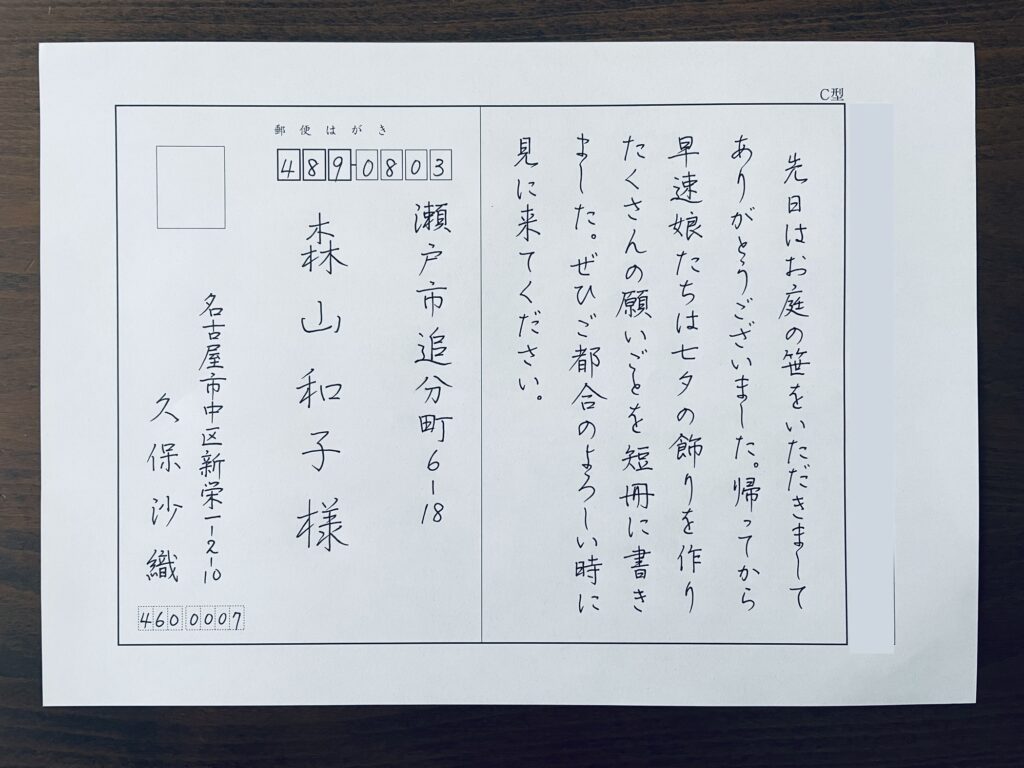 C型
先日はお庭の笹をいただきまして
ありがとうございました。帰ってから
早速娘たちは七夕の飾りを作り
たくさんの願いごとを短冊に書き
ました。ぜひご都合のよろしい時に
見に来てください。
郵便はがき
489-0803
瀬戸市追分町6-18
森山和子様
名古屋市中区新栄一-2-10
久保沙織
4600007